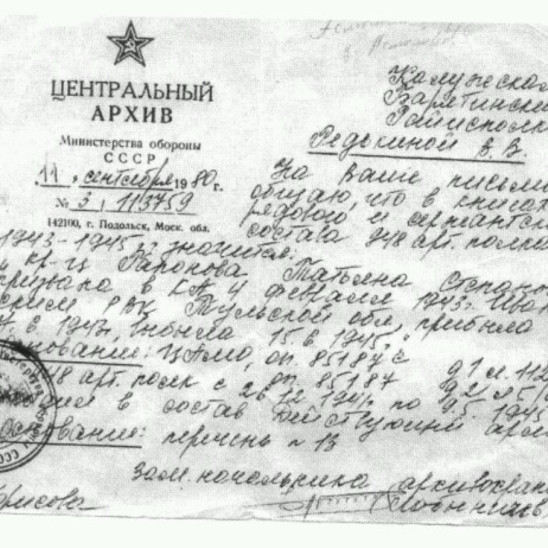 ЦЕНТРАЛЬНЫЙ
АРХИВ
Министерства обороны
СССР
"11" сентября 1980 г.
№ 3/113759
142100, г. Подольск, Моск. обл.
Калужская
Барятинский
Райисполком
Редькиной В. В.
На Ваше письмо
общаю, что в книгах
рядового и сержантск
состава 948 арт. полка
1943-1945, значится:
кр-ц Паронова Татьяна Степано
призвана в КА 4 февраля 1943г.
ским РВК Тульской обл, прибыла
6. 1943, убыла 15. 8. 1945.
Основание: ЦАМО, оп. 85187 с
арт. полк с 26.12.1941г. по 9.5 1945
в состав действующей арм
Основание: перечень № 13
Зам. начальника архивохран
Борисова